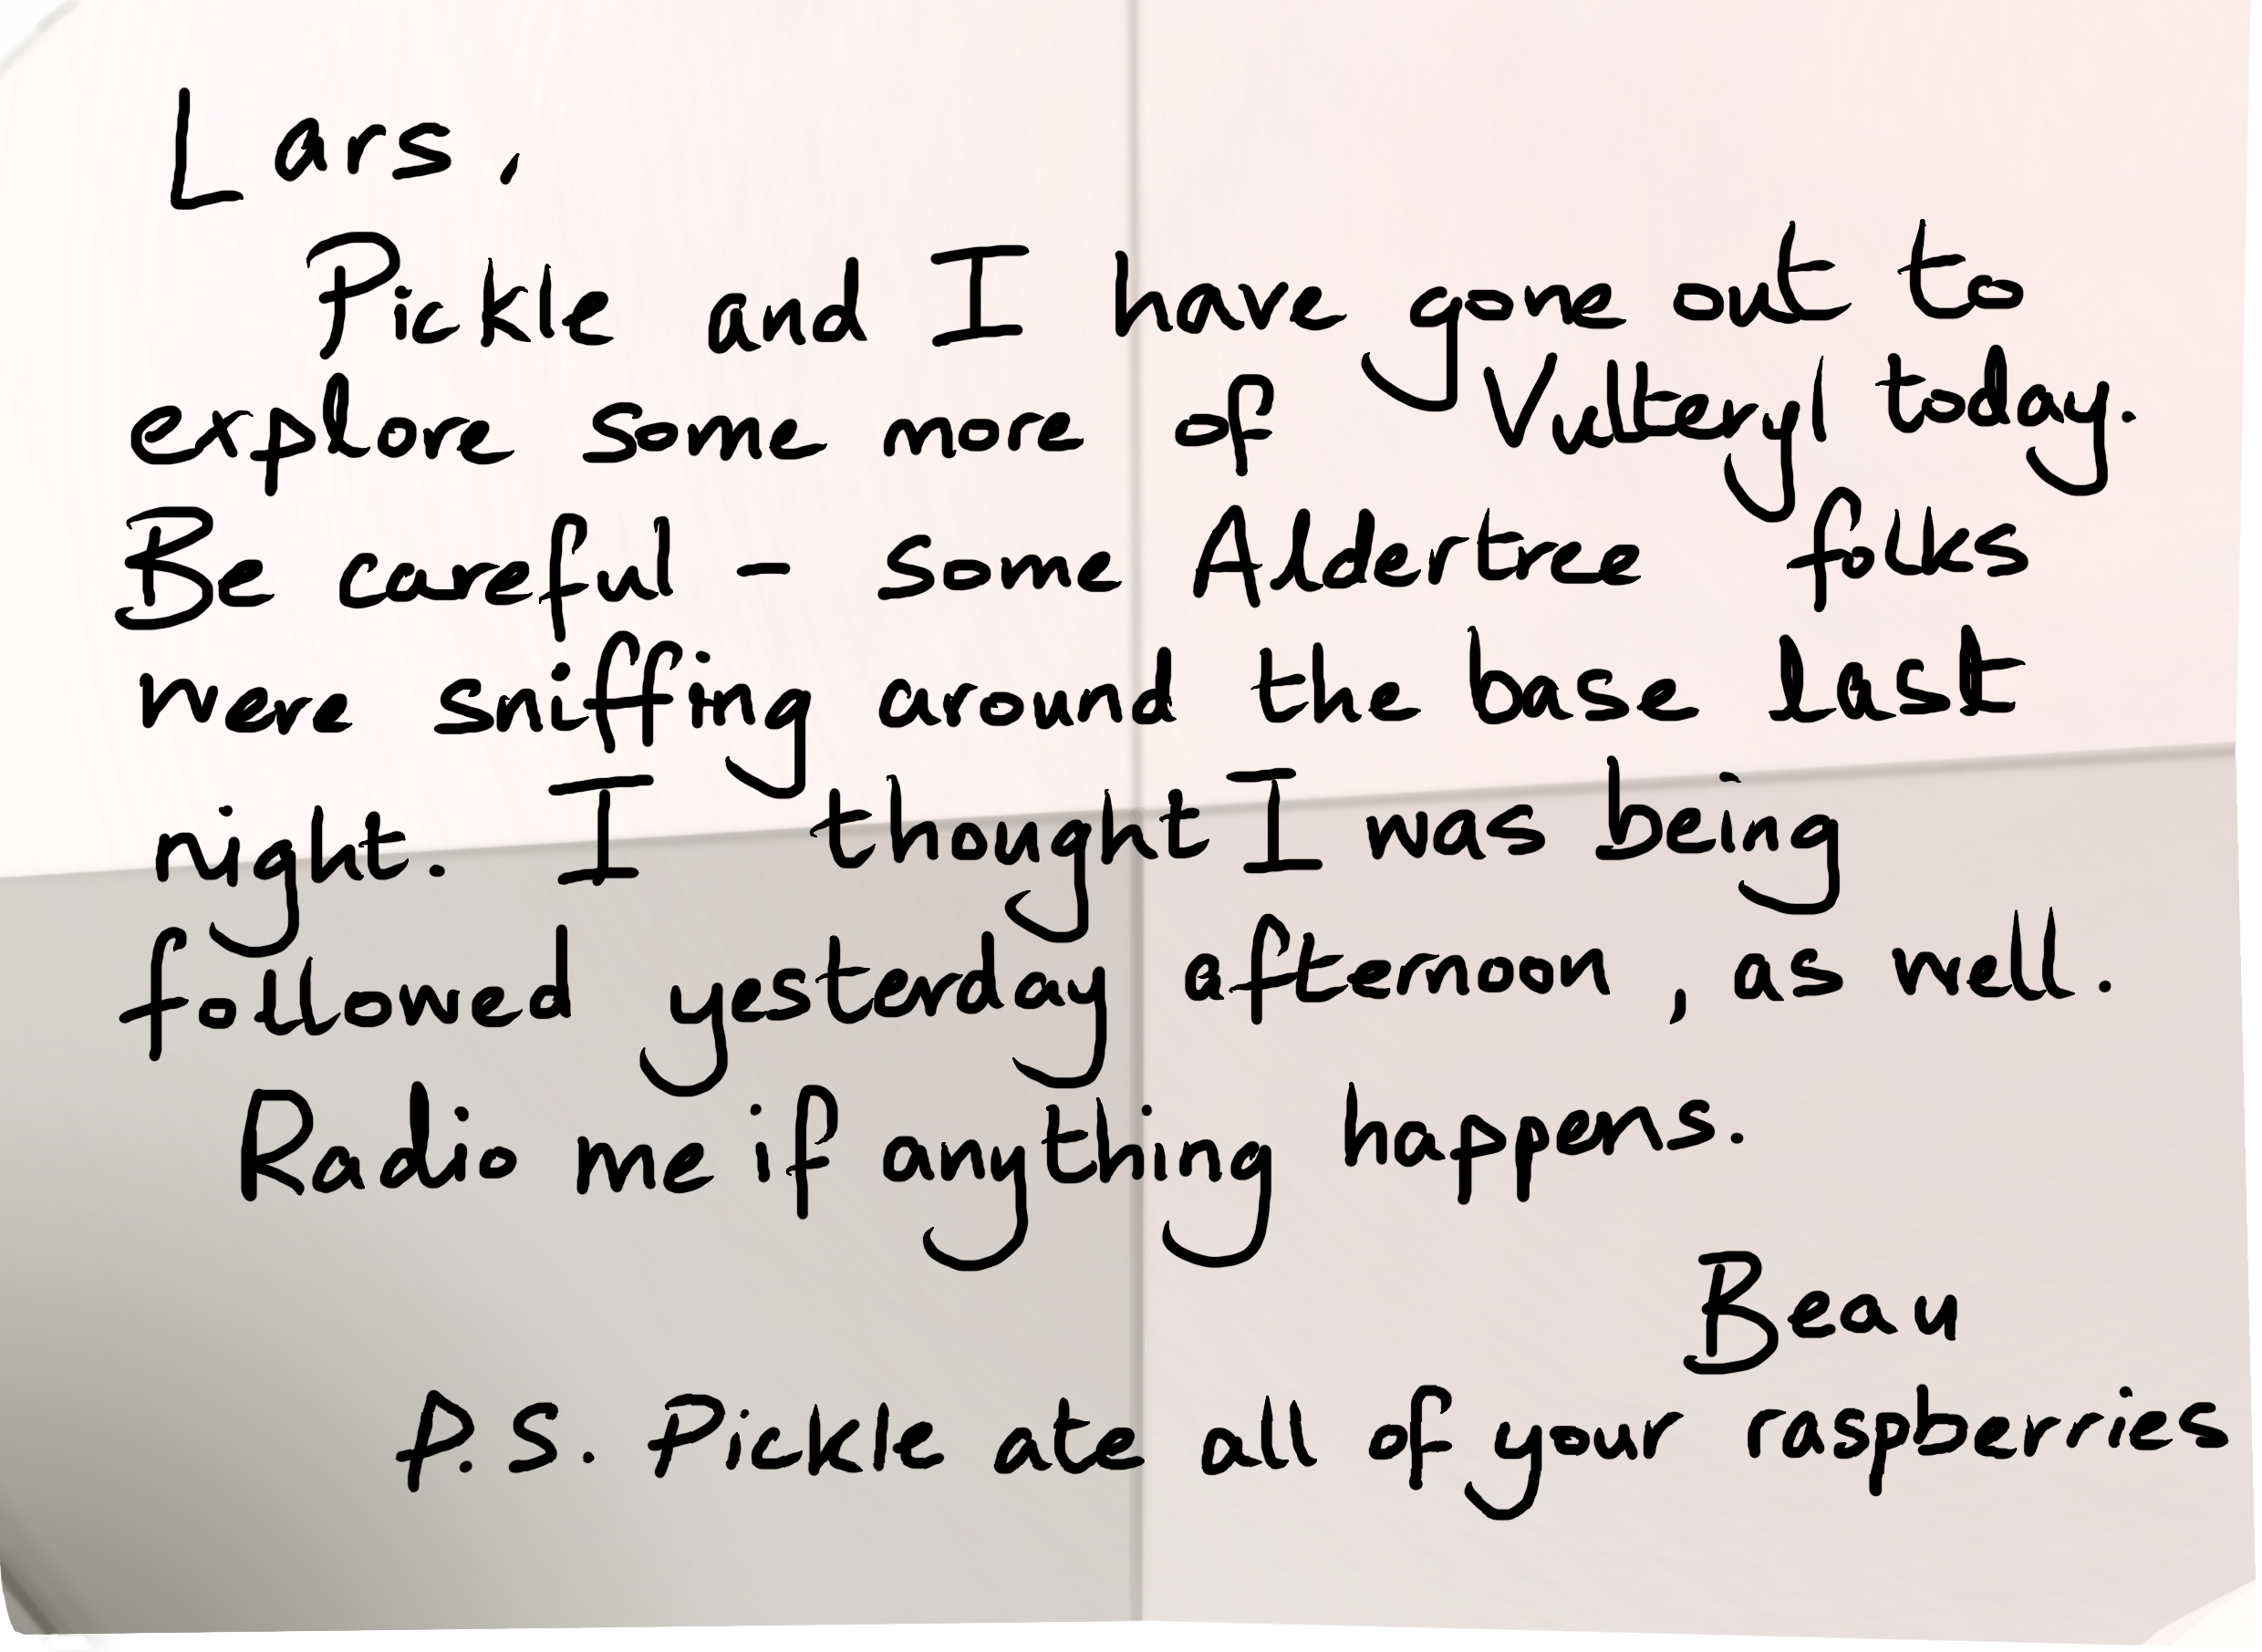 Lars,
Pickle and I have gone out to
explore some more of Vulteryl today.
Be careful - some Aldertree folks
were sniffing around the base last
night. I thought I was being
followed yesterday afternoon, as well.
Radio me if anything happens.
Beau
P.S. Pickle ate all of your raspberries